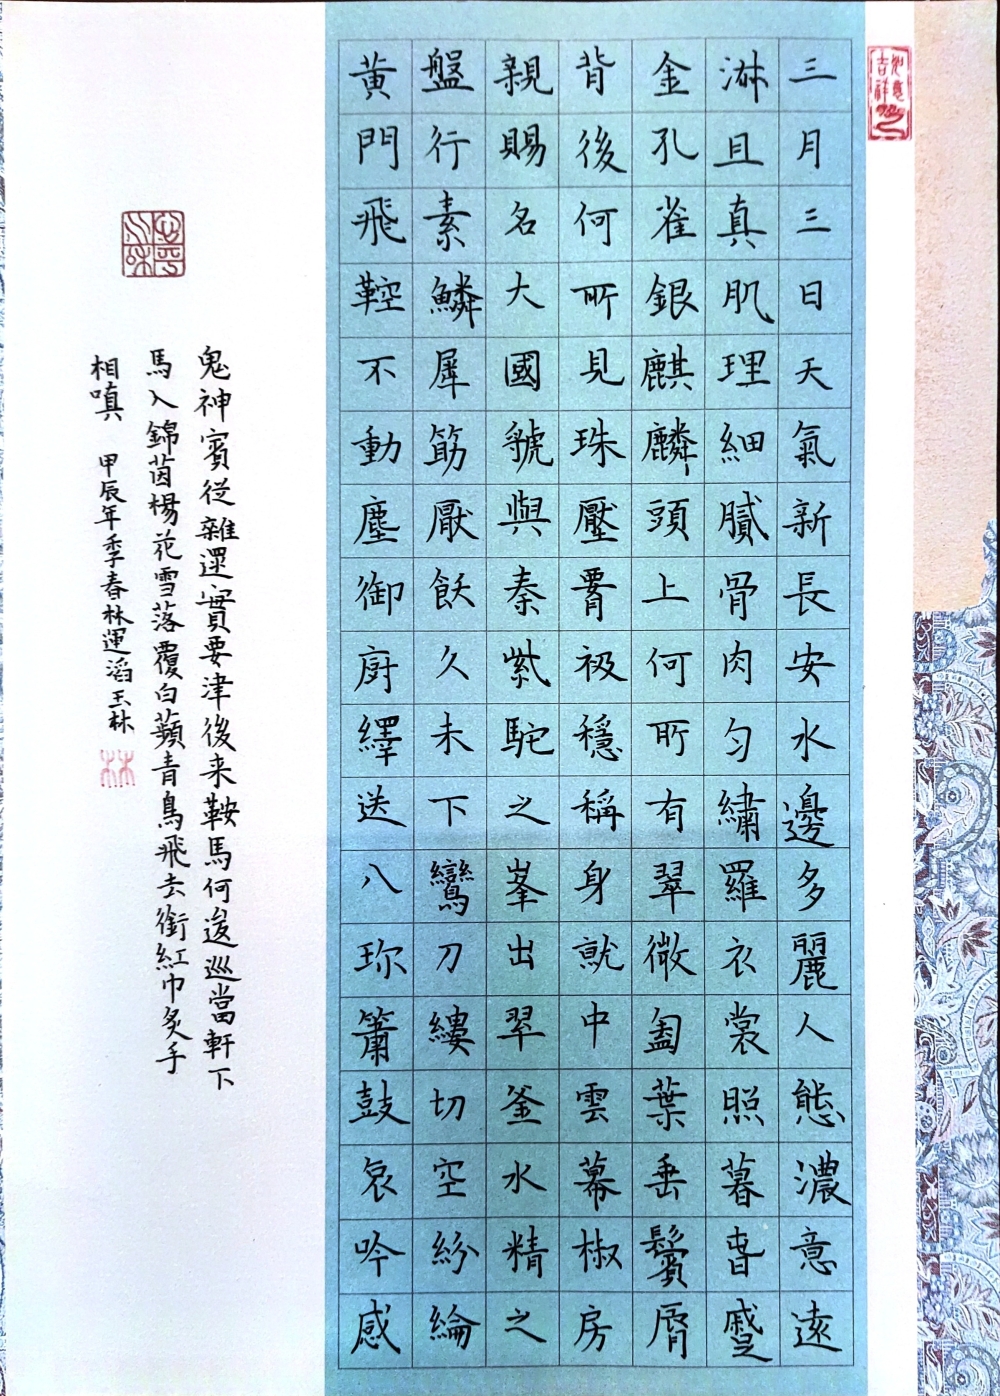 三月三日天氣新長安水邊多麗人態濃意遠
淑且真肌理細膩骨肉勻繡羅衣裳照暮旾蹙
金孔雀銀麒麟頭上何所有翠微㔩葉垂鬢脣
背後何所見珠壓腰衱穩稱身就中雲幕椒房
親賜名大國虢與秦紫駝之峯出翠釜水精之
盤行素鱗犀筯厭飫久未下鸞刀縷切空紛綸
黃門飛鞚不動塵御廚繹送八珎簫鼓哀吟感
鬼神賓從雜遝實要津後来鞍馬何逡巡當軒下
馬入錦茵楊花雪落覆白蘋青鳥飛去銜紅巾炙手
相嗔 甲辰年季春林運滔玉林
林